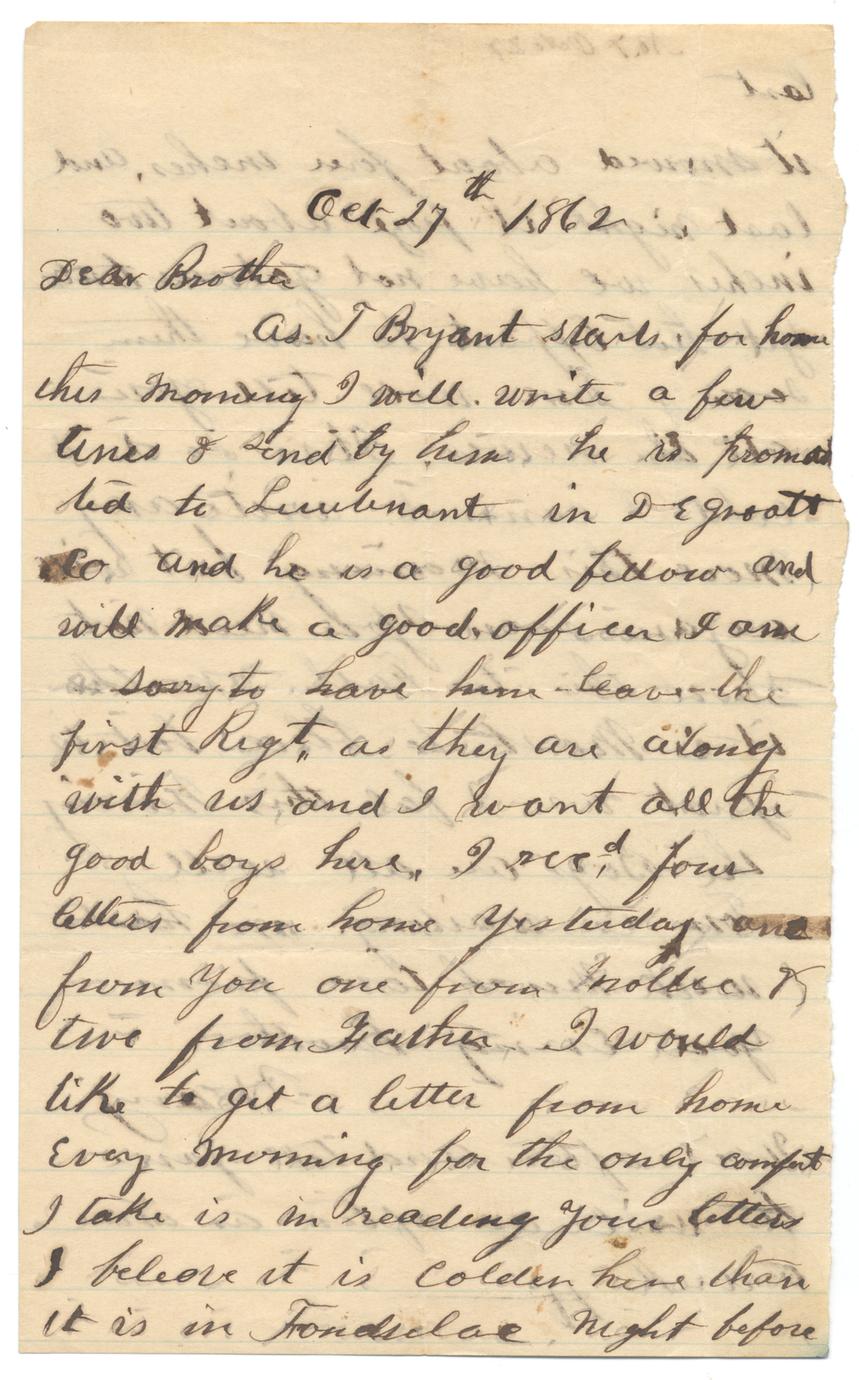 Oct 27th 1862
Dear Brother
As T Bryant starts for home
this Morning I will write a few
lines & send by him he is promo
ted to Lieutenant in DEgroatt
Co and he is a good fellow and
will make a good officer I am
sorry to have him leave the
first Regt,, as they are along
with us and I want all the
good boys here,, I recd four
letters from home Yesterday one
from You one from Mollie &
two from Father I would
like to get a letter from home
Every Morning for the only comfort
I take is in reading Your letters
I beleave it is Colder here than
it is in Fondulac Night before